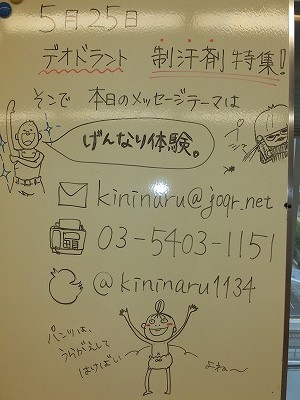 5月25日
デオドラント 制汗剤 特集!
そこで 本日のメッセージテーマは
げんなり体験。
kininaru@joqr.net
03-5403-1151
@kininaru1134
パンツは、
うらがえして
はけばいい
よね〜